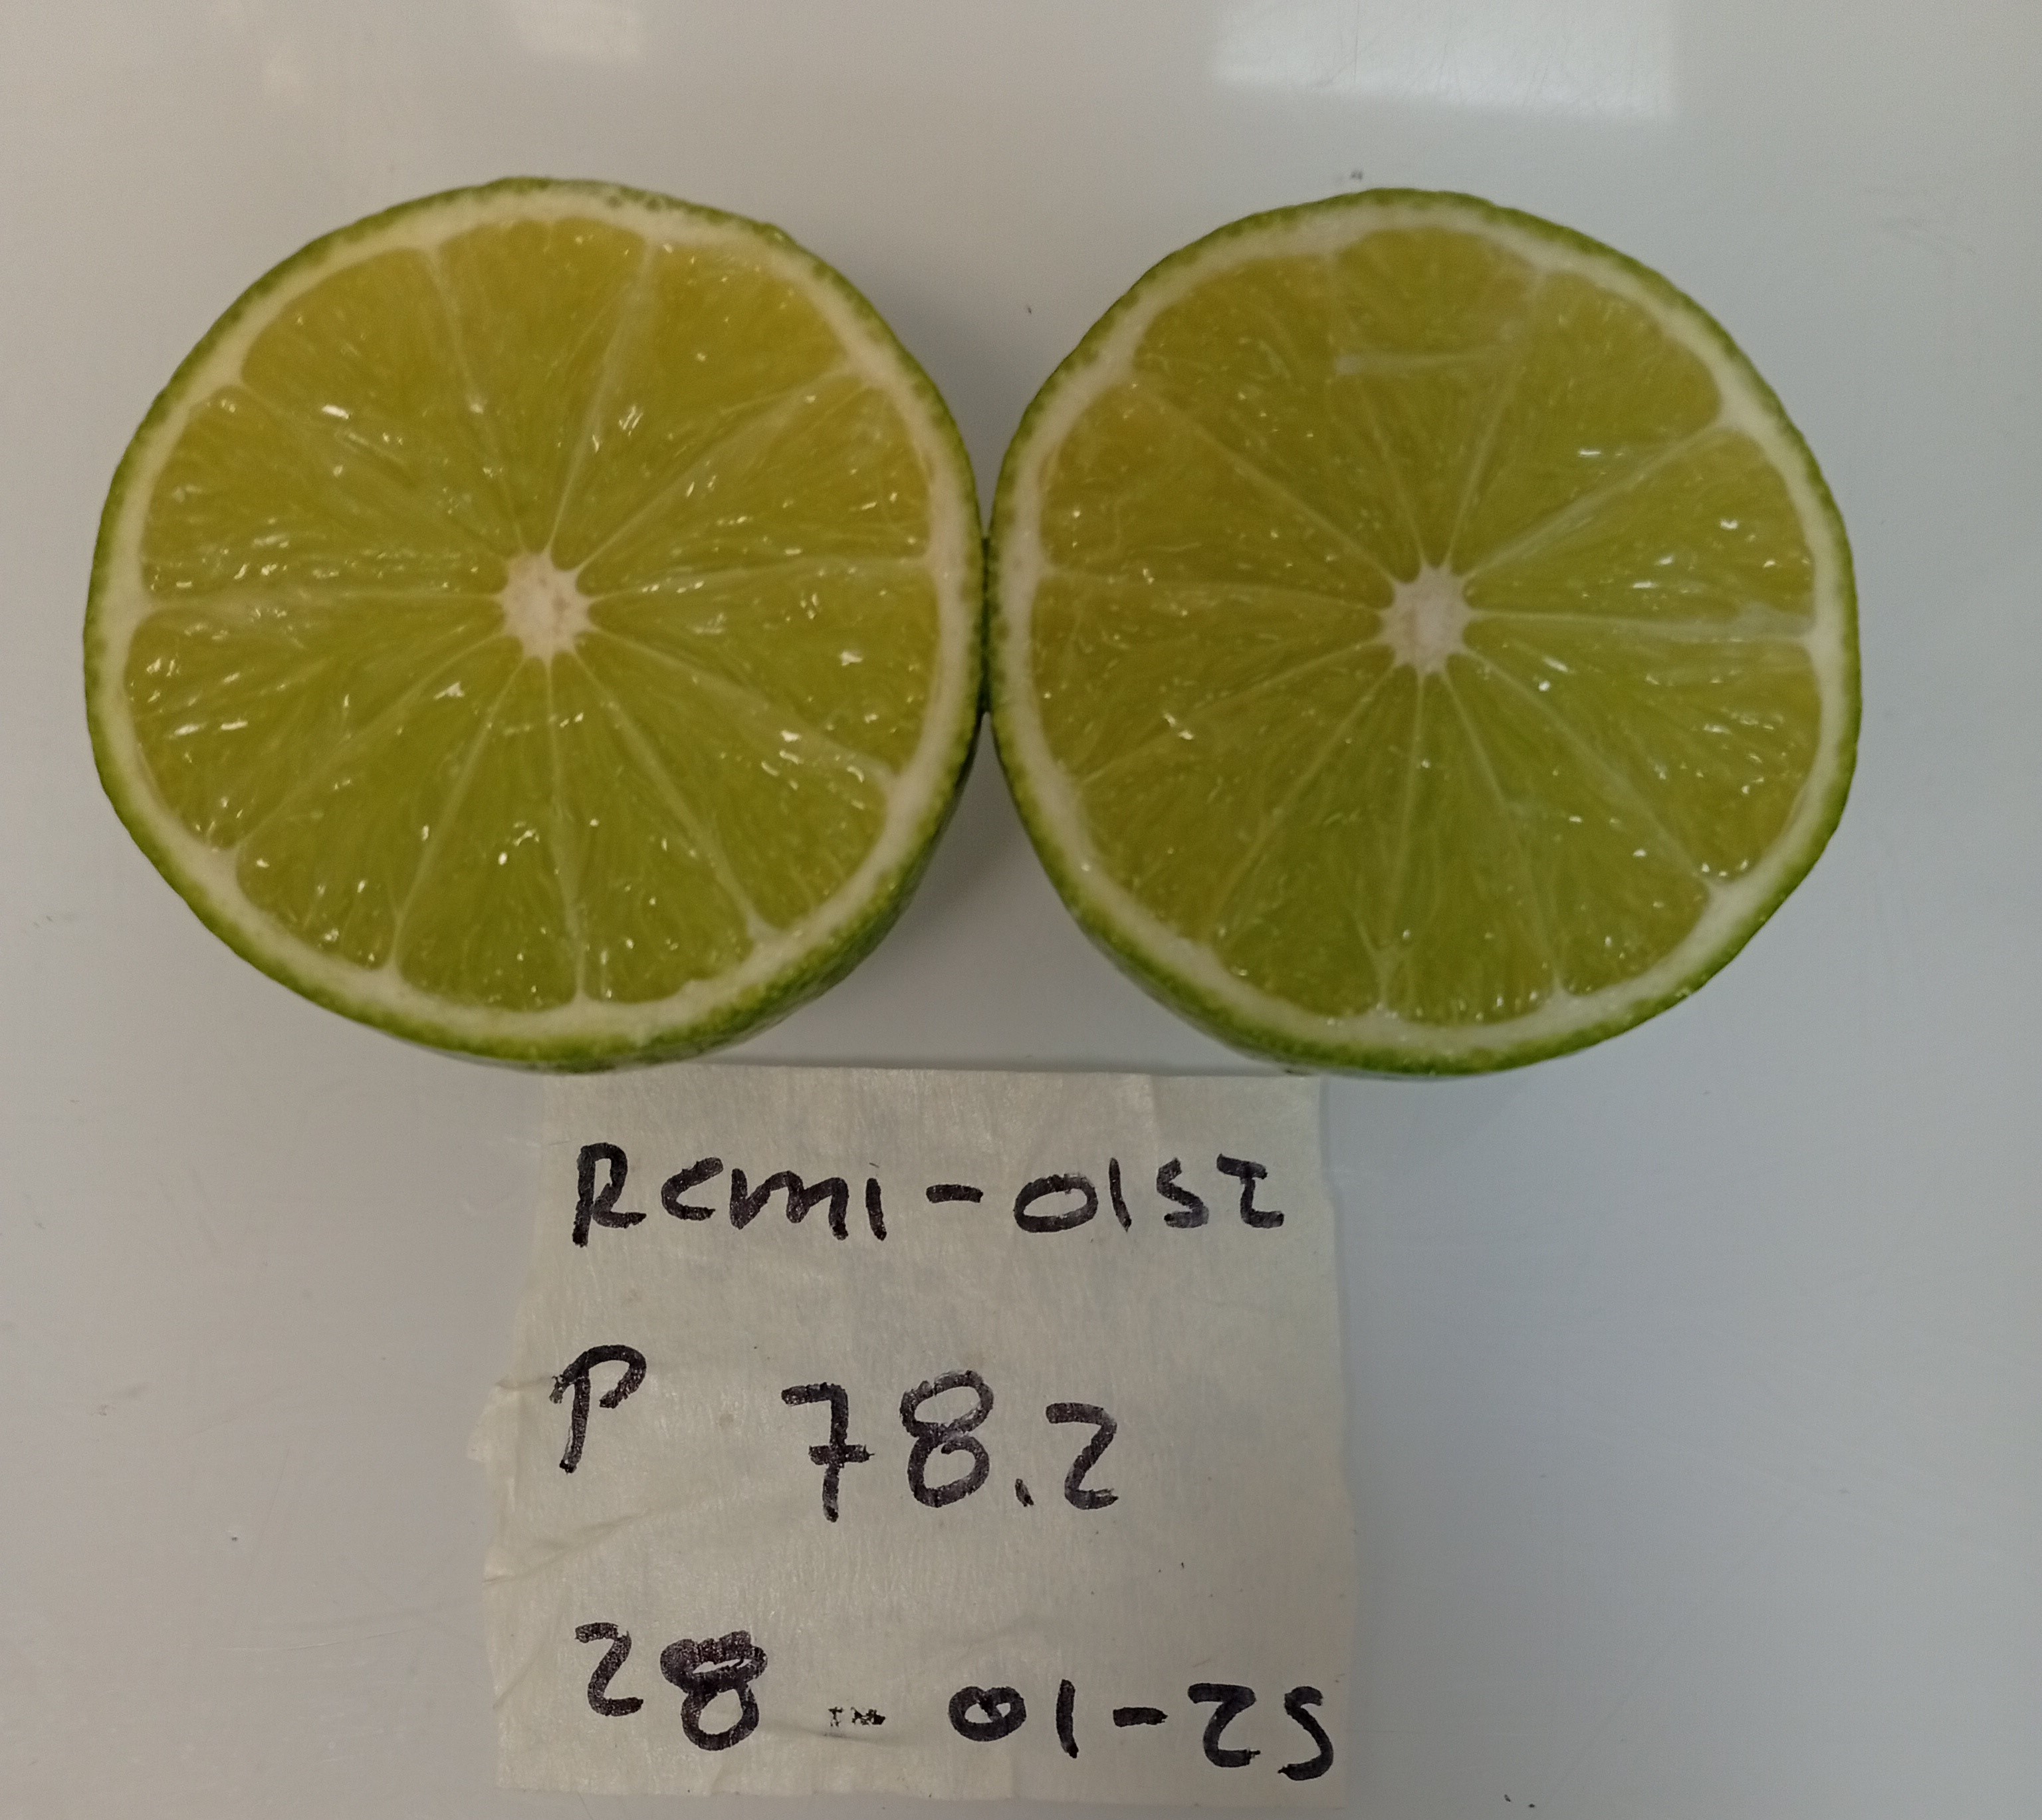 Rcmi-0152
P 78.2
28-01-25